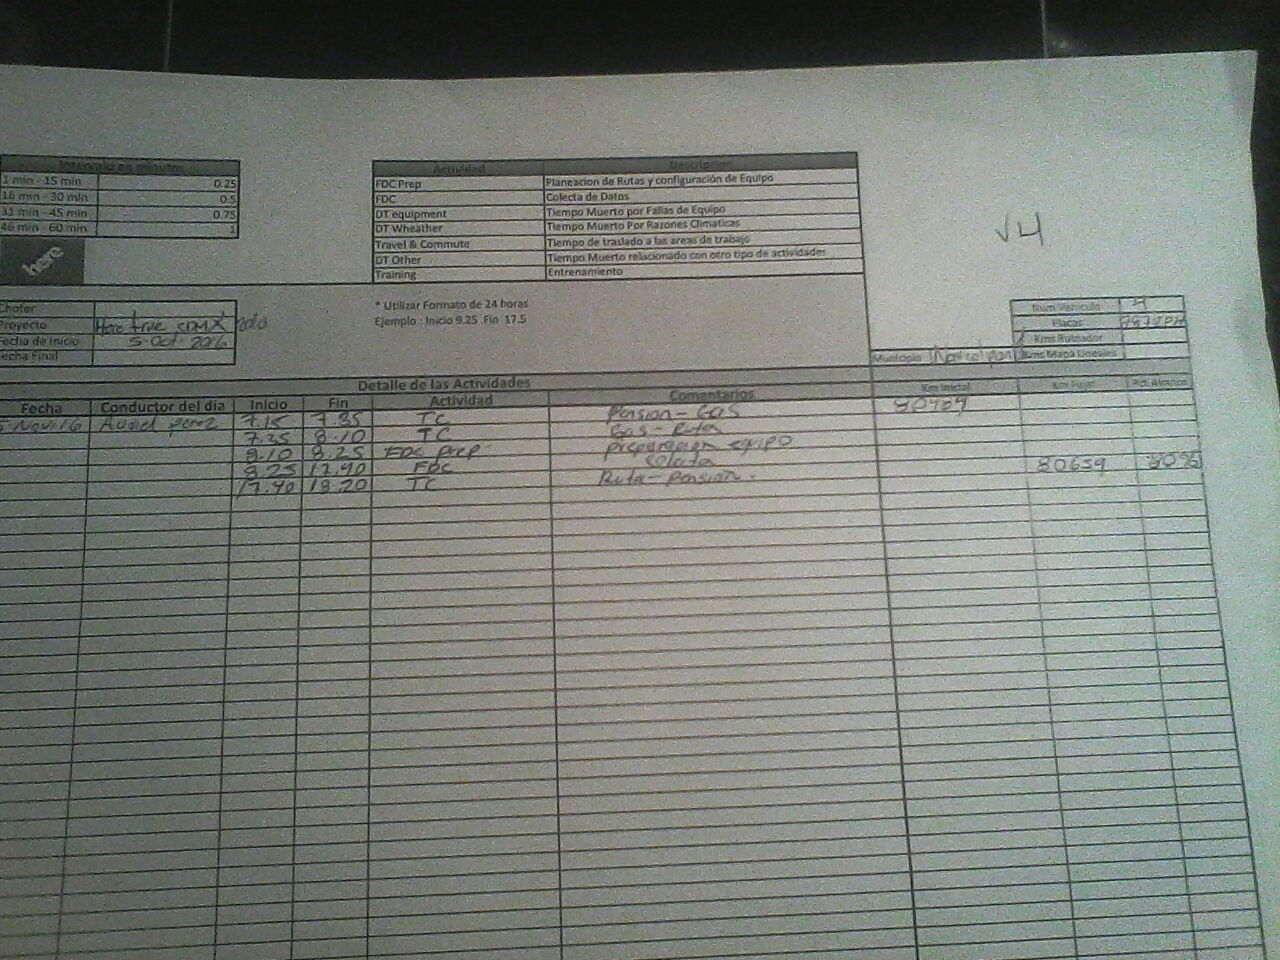 Intervalo en minutos
1 min - 15 min 0.25
16 min - 30 min 0.5
31 min - 45 min 0.75
46 min - 60 min 1
here
Actividad Descripcion
FDC Prep Planeacion de Rutas y configuración de Equipo
FDC Colecta de Datos
DT equipment Tiempo Muerto por Fallas de Equipo
DT Wheather Tiempo Muerto Por Razones Climaticas
Travel & Commute Tiempo de traslado a las areas de trabajo
DT Other Tiempo Muerto relacionado con otro tipo de actividades
Training Entrenamiento
V4
* Utilizar Formato de 24 horas
Ejemplo : Inicio 9.25 Fin 17.5
Chofer
Proyecto Here true CDMX 2016
Fecha de Inicio 5-Oct-2016
Fecha Final
Num Vehiculo 4
Placas
Kms Ruteador
Municipio Kms Mapa Lineales
Detalle de las Actividades
Fecha Conductor del dia Inicio Fin Actividad Comentarios Km Inicial Km Final Pct Avance
5 Nov 16 Audiel perez 7.15 7.35 TC Pension - Gas
7.35 8.10 TC Gas - Ruta
8.10 8.25 FDC prep preparacion equipo
8.25 17.40 FDC colecta 80659
17.40 18.20 TC Ruta - Pension.